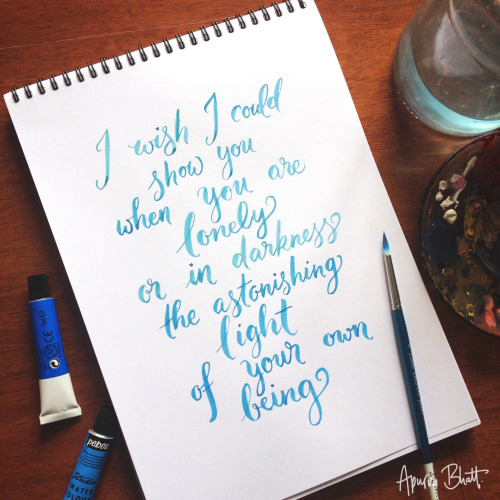 I wish I could
show you
when you are
lonely
or in darkness
the astonishing
light
of your own
being
CE
pebeo
Studio
WATER
COLOUR
Apurva Bhatt.